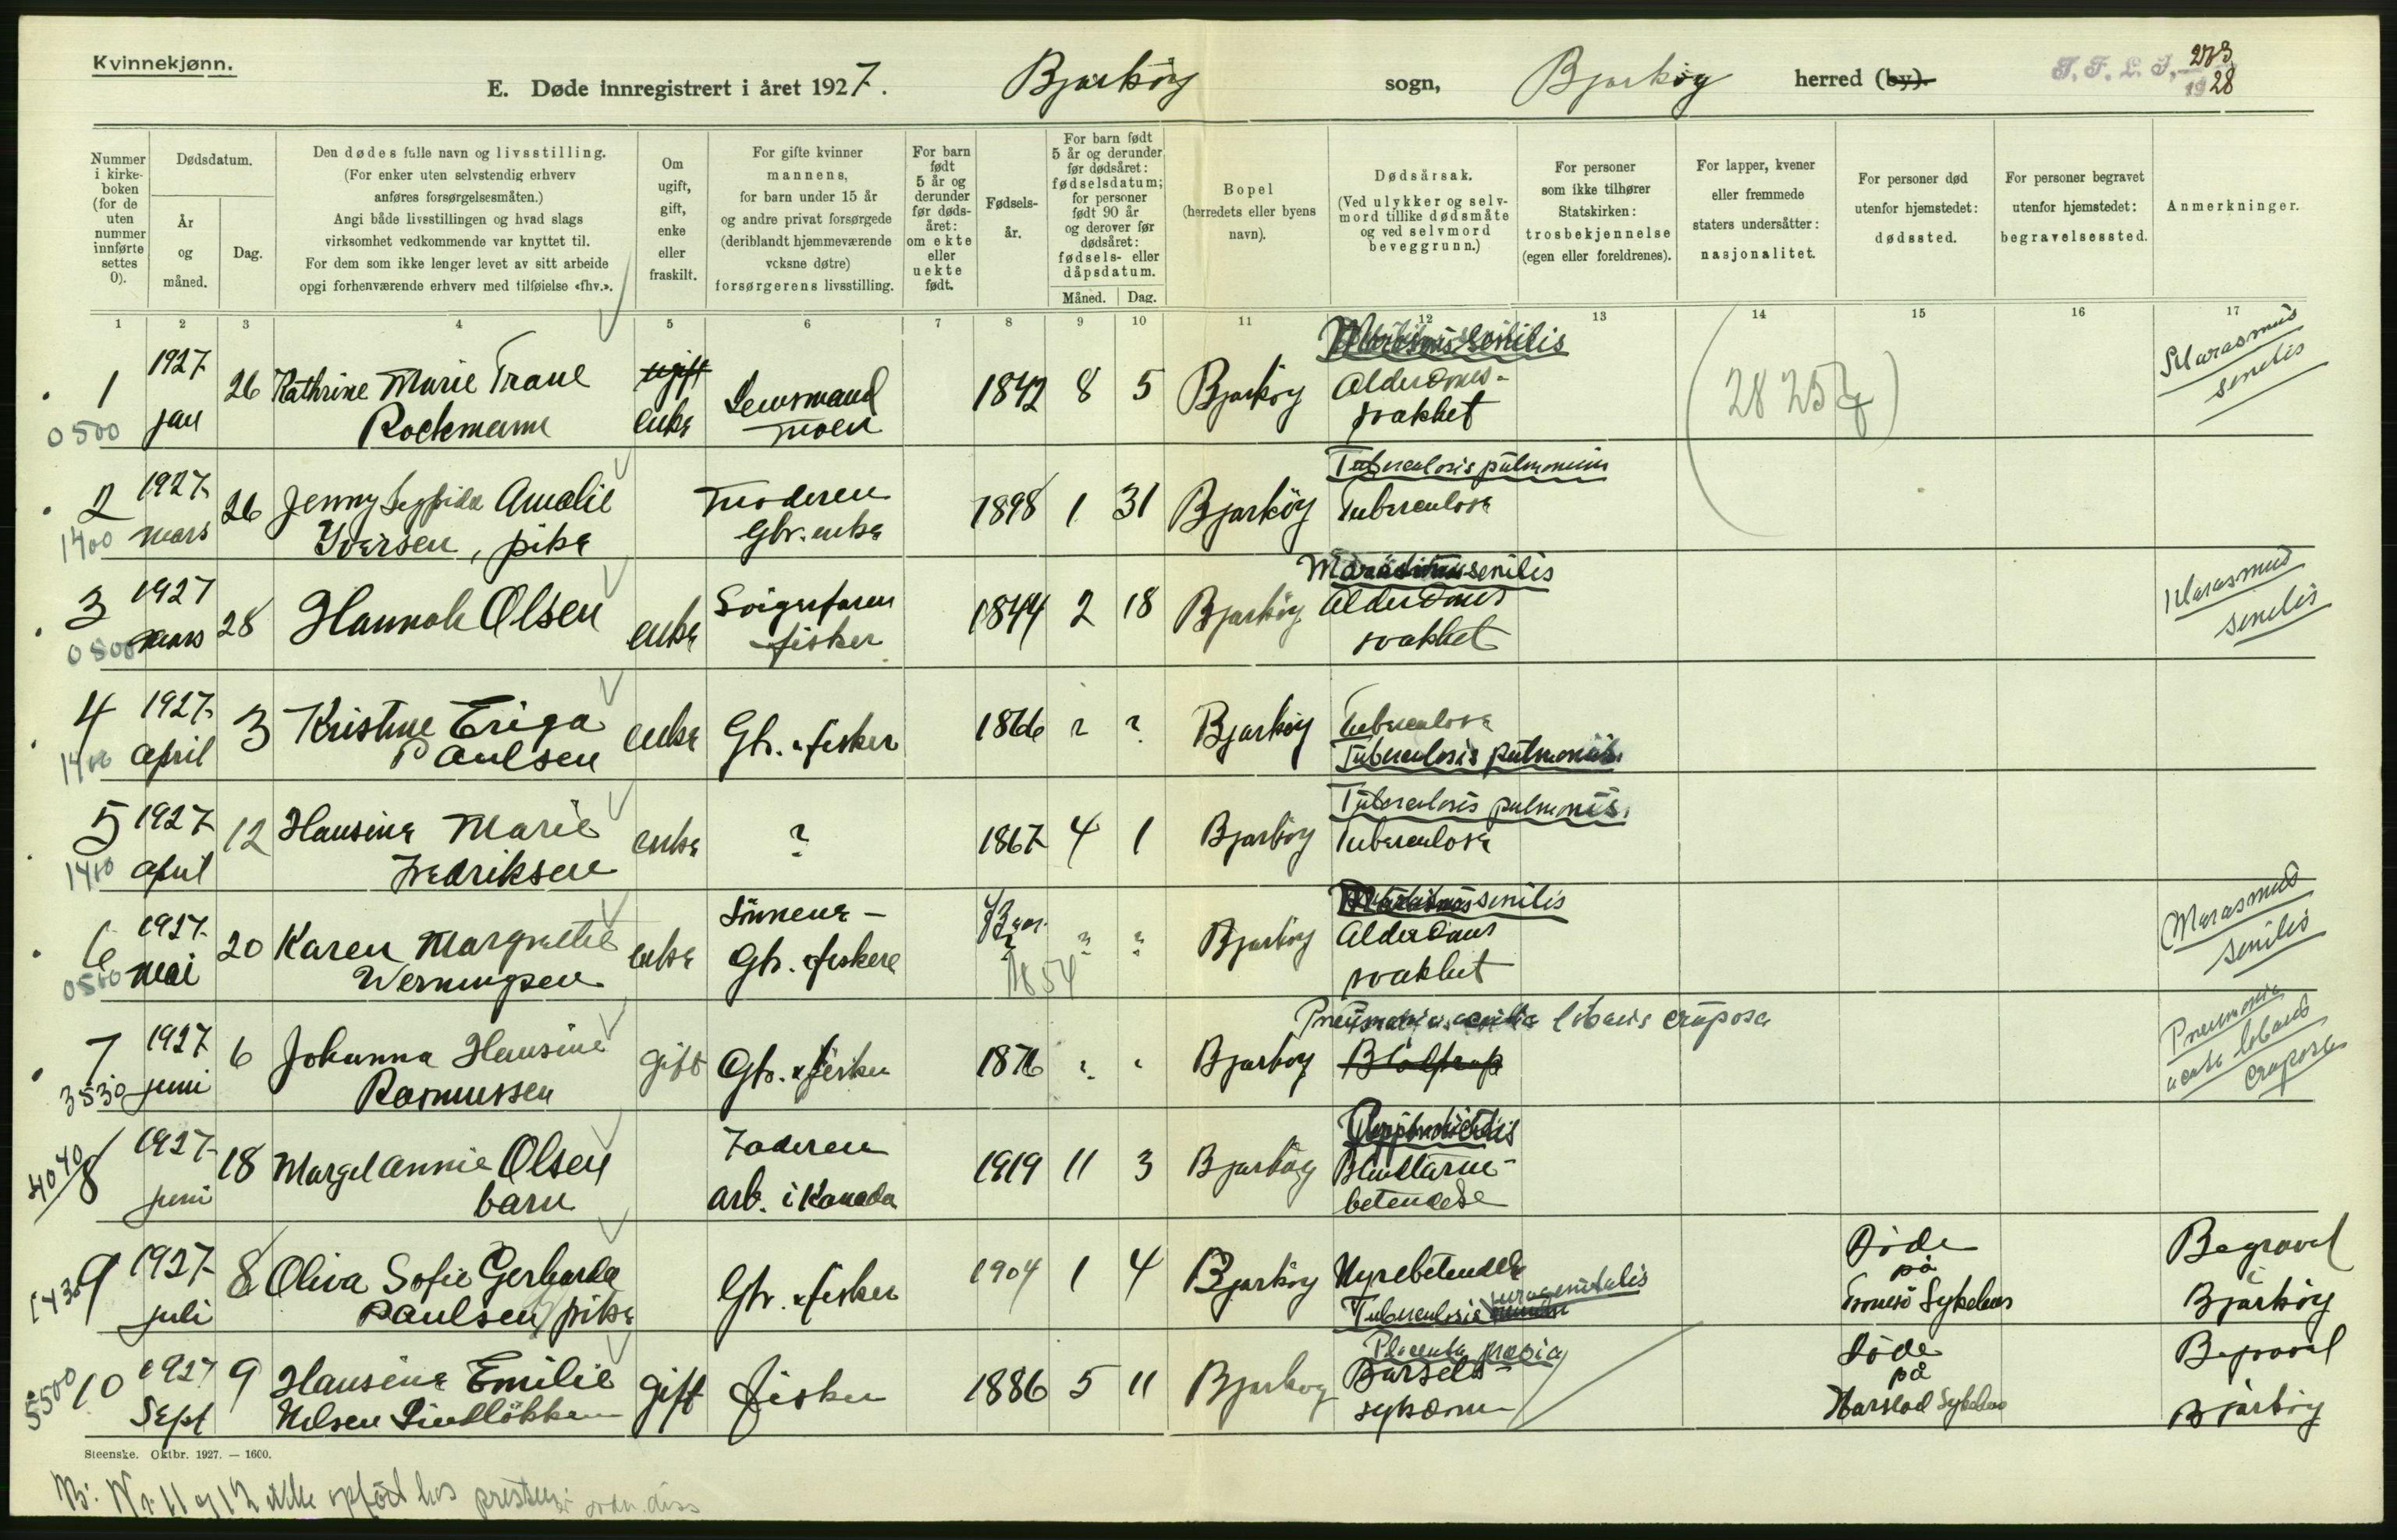 Kvinnekjønn.
E. Døde innregistrert i året 1927. Bjarköy sogn, Bjarköy herred (by).
S. F. L. J. 273
1928
Nummer i kirkeboken (for de uten nummer innførte settes 0).
Dødsdatum.
År og måned.
Dag.
Den dødes fulle navn og livsstilling.
(For enker uten selvstendig erhverv
anføres forsørgelsesmåten.)
Angi både livsstillingen og hvad slags
virksomhet vedkommende var knyttet til.
For dem som ikke lenger levet av sitt arbeide
opgi forhenværende erhverv med tilføielse «fhv.».
Om ugift, gift, enke eller fraskilt.
For gifte kvinner
mannens,
for barn under 15 år
og andre privat forsørgede
(deriblandt hjemmeværende
voksne døtre)
forsørgerens livsstilling.
For barn født 5 år og derunder før dødsåret: om ekte eller uekte født.
Fødselsår.
For barn født
5 år og derunder
før dødsåret:
fødselsdatum;
for personer
født 90 år
og derover før
dødsåret:
fødsels- eller
dåpsdatum.
Måned. Dag.
Bopel
(herredets eller byens
navn).
Dødsårsak.
(Ved ulykker og selv-
mord tillike dødsmåte
og ved selvmord
beveggrunn.)
For personer
som ikke tilhører
Statskirken:
trosbekjennelse
(egen eller foreldrenes).
For lapper, kvener
eller fremmede
staters undersåtter:
nasjonalitet.
For personer død
utenfor hjemstedet:
dødssted.
For personer begravet
utenfor hjemstedet:
begravelsessted.
Anmerkninger.
1 2 3 4 5 6 7 8 9 10 11 12 13 14 15 16 17
1 0500 1927 jan 26 Kathrine Marie Trane Rochmann ugift enke Lensmand moen 1842 8 5 Bjarköy Marasmus senilis Alderdoms- svakhet Marasmus senilis
2 1400 1927 mars 26 Jenny Amalie Iversen, pike moderen Gbr. enke 1898 1 31 Bjarköy Tuberculosis pulmonum Tuberculose
3 0500 1927 mars 28 Hannah Olsen enke Svigerfaren fisker 1844 2 18 Bjarköy Marasmus senilis Alderdoms svakhet Marasmus senilis
4 1400 1927 april 3 Kristine Eriga Paulsen enke Gb. & fisker 1866 ? ? Bjarköy Tuberculose Tuberculosis pulmonis.
5 1400 1927 april 12 Hansine Marie Fredriksen enke ? 1867 4 1 Bjarköy Tuberculosis pulmonis. Tuberculose
6 0500 1927 mai 20 Karen Margrethe Werningsen enke Sönnene - Gb. & fiskere 73 aar ? 1854 ? ? Bjarköy Marasmus senilis Alderdoms svakhet Marasmus senilis
7 3530 1927 juni 6 Johanna Hansine Rasmussen gift Gb. & fisker 1876 Bjarköy Pneumonia acuta lobaris cruposa Pneumonia acuta lobaris cruposa
8 4040 1927 juni 18 Margel Annie Olsen barn Faderen arb. i Kanada 1919 11 3 Bjarköy Appendicitis Blindtarm- betendelse
9 1430 1927 juli 8 Oliva Sofie Gerharda Paulsen pike Gbr. & fisker 1904 1 4 Bjarköy Nyrebetendelse Tuberculosis urogenitalis Döde på Tromsö Sykehus Begravet i Bjarköy
10 5500 1927 Sept 9 Hansine Emilie Nilsen Lindlökken gift fisker 1886 5 11 Bjarkoy Placenta prævia Barsels- sykdom Döde på Harstad Sykehus Begravet Bjarköy
(28252)
Steenske. Oktbr. 1927. — 1600.
NB: Nr. 11 og 12 ikke opfört hos presten